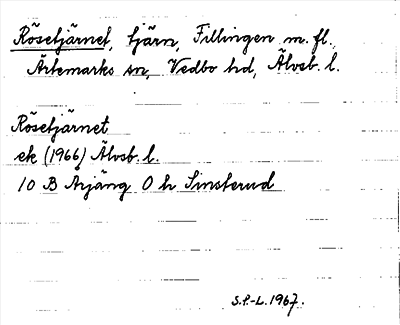 Rösetjärnet, tjärn, Fillingen m. fl.
Ärtemarks sn, Vedbo hd, Älvsb. l.
Rösetjärnet
ek (1966) Älvsb. l.
10 B Årjäng O h Sinsterud
S.P.-L. 1967.